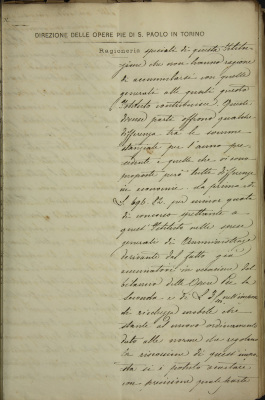 DIREZIONE DELLE OPERE PIE DI S. PAOLO IN TORINO
Ragioneria speciale di questa Istitu-
zione che non hanno ragione
di accomunarsi con quelle
generali alle quali questo
Istituto contribuisce. Queste
diverse parti offrono qualche
differenza tra le somme
stanziate per l'anno pre-
cedente e quelle che vi sono
proposte però tutte differenze
in economia. La prima di
L 696. 82 per minor quota
di concorso spettante a
quest'Istituto nelle spese
generali di Amministrazione
derivante dal fatto già
enunciato in occasione del
bilancio delle
Seconda e di L
di ricchezza mobile che
stante il nuovo ordinamento
dato alle norme che regolano
la riscossione di quest'impo-
sta si è potuto
con precisione qual parte